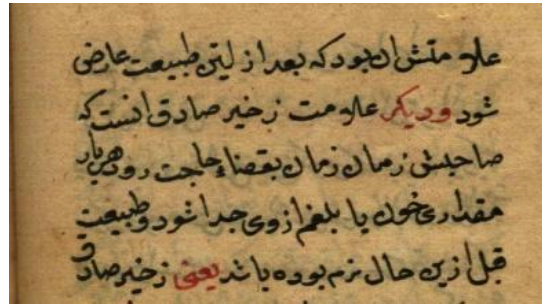 علامتش ان بود که بعد از لین طبیعت عارض
شود و دیکر علامت زخیر صادق انست که
صاحبش زمان زمان بقضاء حاجت رود هربار
مقداری خون یا بلغم از وی جدا شود و طبیعت
قبل ازین حال نرم بوده باشد یعنی زخیر صادق